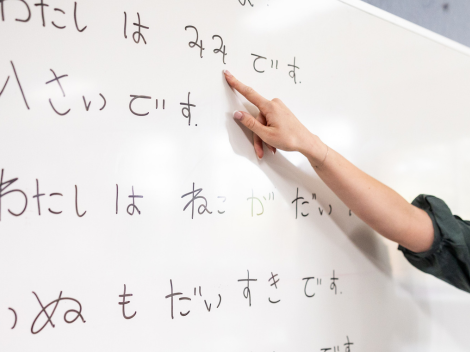 わたし は みみ です.
八さい です.
わたし は ねこ が だい
いぬ も だいすき です.